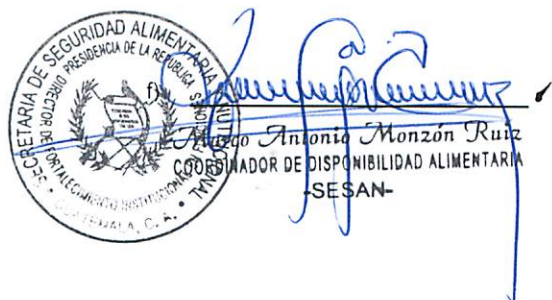 SECRETARIA DE SEGURIDAD ALIMENTARIA
PRESIDENCIA DE LA REPUBLICA
DIRECTOR DE FORTALECIMIENTO INSTITUCIONAL
GUATEMALA, C. A.
f)
Marco Antonio Monzón Ruiz
COORDINADOR DE DISPONIBILIDAD ALIMENTARIA
-SESAN-